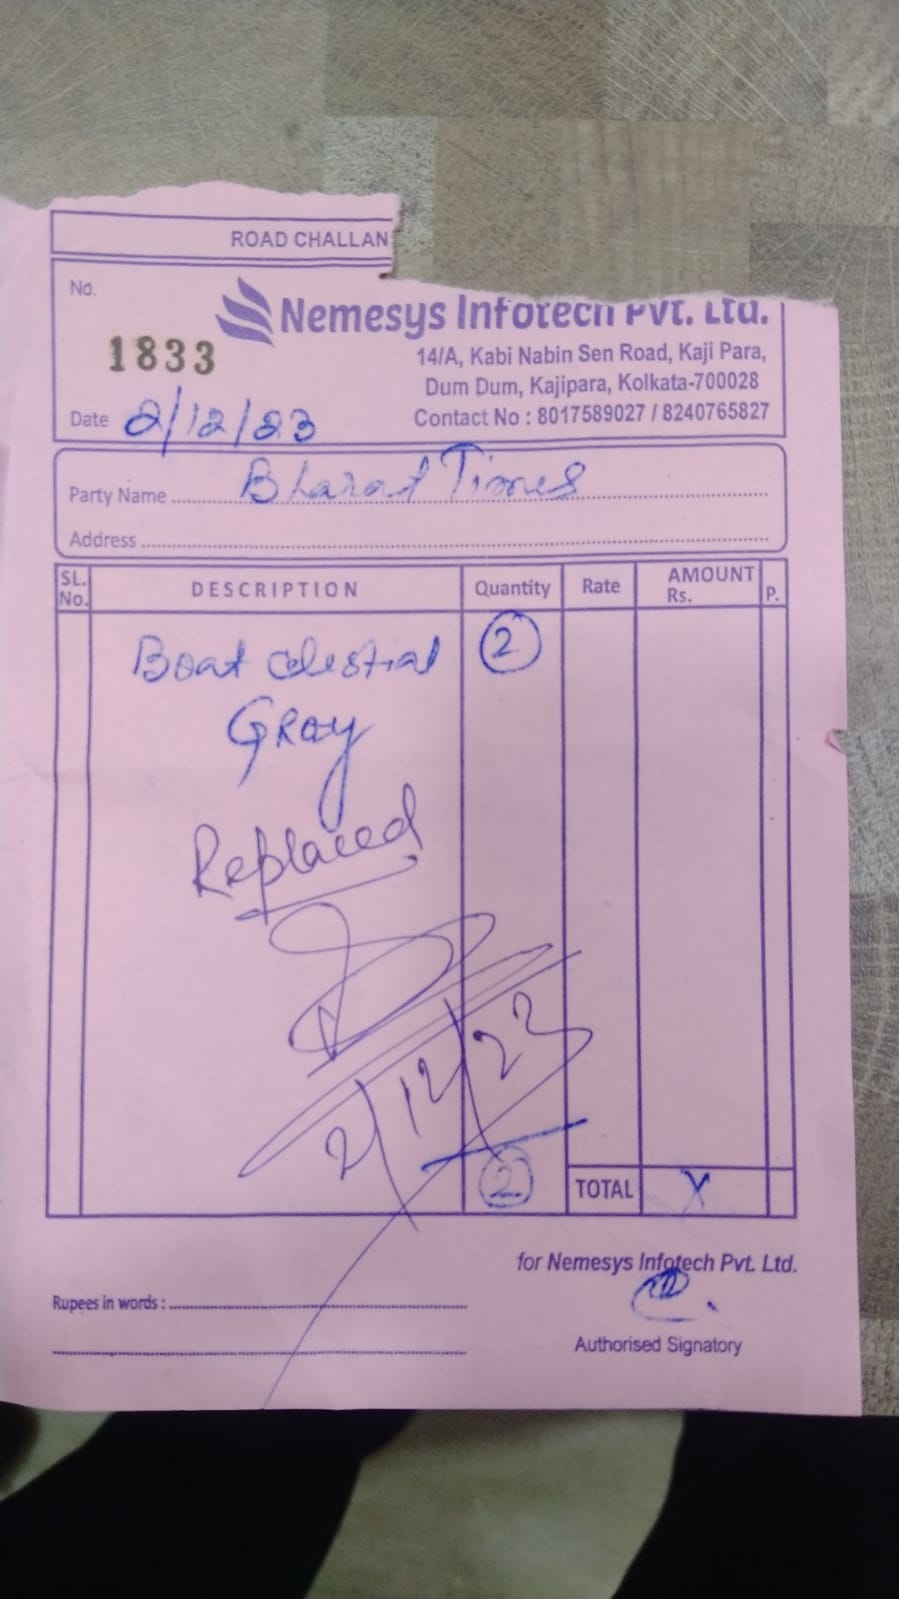 ROAD CHALLAN
No.
Nemesys Infotech Pvt. Ltd.
1833
14/A, Kabi Nabin Sen Road, Kaji Para,
Dum Dum, Kajipara, Kolkata-700028
Date 2/12/23
Contact No : 8017589027 / 8240765827
Party Name Bharat Times
Address
SL. No. DESCRIPTION Quantity Rate AMOUNT Rs. P.
Boat Celestial 2
Gray
Replaced
2/12/23
2
TOTAL X
for Nemesys Infotech Pvt. Ltd.
Rupees in words :
Authorised Signatory